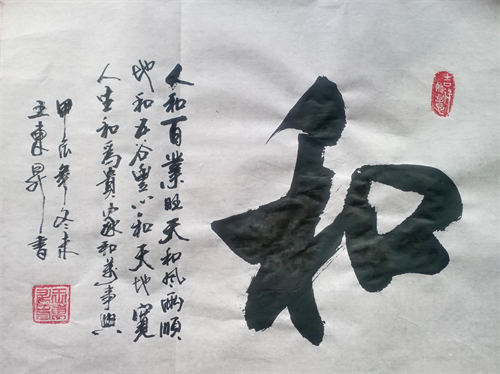 和
人和百業旺天和风雨順
地和五谷豐心和天地寬
人生和爲貴家和萬事興
甲辰冬末
王東昇書